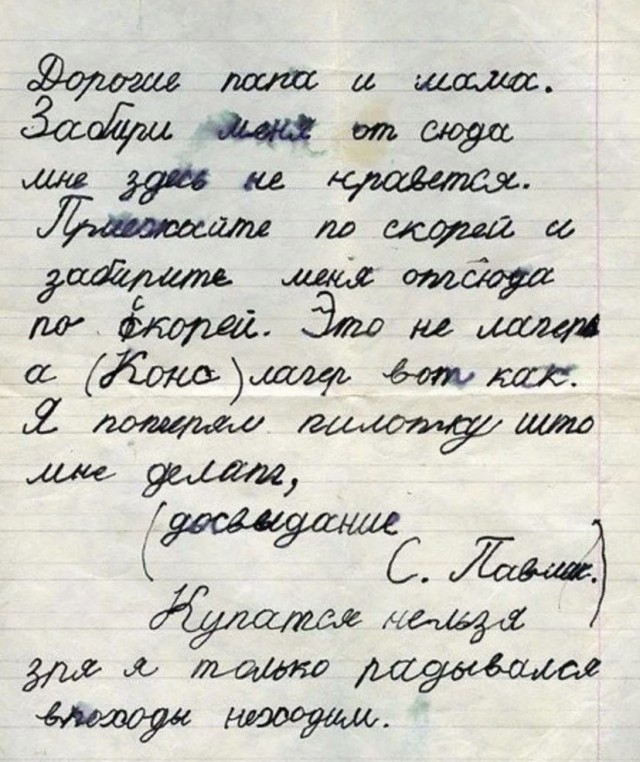 Дорогие папа и мама.
Забири меня от сюда
мне здесь не нравется.
Приезжайте по скорей и
забирите меня отсюда
по скорей. Это не лагерь
а (Конс) лагер вот как.
Я потерям пилотку што
мне делать,
(досвыдание
С. Павлик.)
Купатся нельзя
зря я только радывался
впоходы неходим.